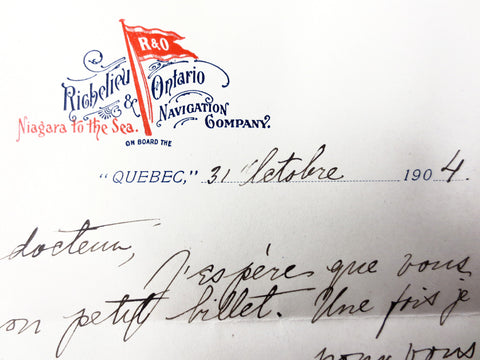 R&O
Richelieu & Ontario
Navigation Company.
Niagara to the Sea.
ON BOARD THE
"QUEBEC," 31 Octobre 1904.
docteur,
J'espère que vous
on petit billet. Une fois je
pour vous